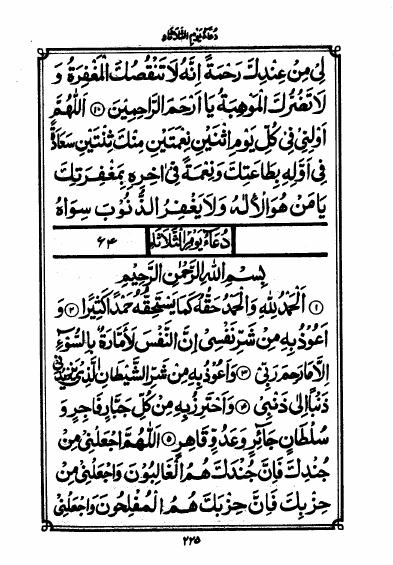 دُعَاءُ يَوْمِ الثَّلَاثَاءِ
لِيْ مِنْ عِنْدِكَ رَحْمَةً اِنَّهٗ لَا تَنْقُصُكَ الْمَغْفِرَةُ وَ
لَا تَضُرُّكَ الْمَوْهِبَةُ يَا اَرْحَمَ الرَّاحِمِيْنَ ⑩ اَللّٰهُمَّ
اَوْلِنِيْ فِيْ كُلِّ يَوْمِ اثْنَيْنِ نِعْمَتَيْنِ مِنْكَ ثِنْتَيْنِ سَعَادَةً
فِيْ اَوَّلِهٖ بِطَاعَتِكَ وَ نِعْمَةً فِيْ اٰخِرِهٖ بِمَغْفِرَتِكَ
يَا مَنْ هُوَ الْاِلٰهُ وَ لَا يَغْفِرُ الذُّنُوْبَ سِوَاهُ
دُعَاءُ يَوْمِ الثَّلَاثَاءِ ۶۴
بِسْمِ اللهِ الرَّحْمٰنِ الرَّحِيْمِ
① اَلْحَمْدُ لِلّٰهِ وَ الْحَمْدُ حَقُّهٗ كَمَا يَسْتَحِقُّهٗ حَمْدًا كَثِيْرًا ② وَ
اَعُوْذُ بِهٖ مِنْ شَرِّ نَفْسِيْ اِنَّ النَّفْسَ لَاَمَّارَةٌ بِالسُّوْٓءِ
اِلَّا مَا رَحِمَ رَبِّيْ ③ وَ اَعُوْذُ بِهٖ مِنْ شَرِّ الشَّيْطَانِ الَّذِيْ يَزِيْدُنِيْ
ذَنْبًا اِلٰى ذَنْبِيْ ④ وَ اَحْتَرِزُ بِهٖ مِنْ كُلِّ جَبَّارٍ فَاجِرٍ وَ
سُلْطَانٍ جَائِرٍ وَ عَدُوٍّ قَاهِرٍ ⑤ اَللّٰهُمَّ اجْعَلْنِيْ مِنْ
جُنْدِكَ فَاِنَّ جُنْدَكَ هُمُ الْغَالِبُوْنَ وَ اجْعَلْنِيْ مِنْ
حِزْبِكَ فَاِنَّ حِزْبَكَ هُمُ الْمُفْلِحُوْنَ وَ اجْعَلْنِيْ
۲۲۵